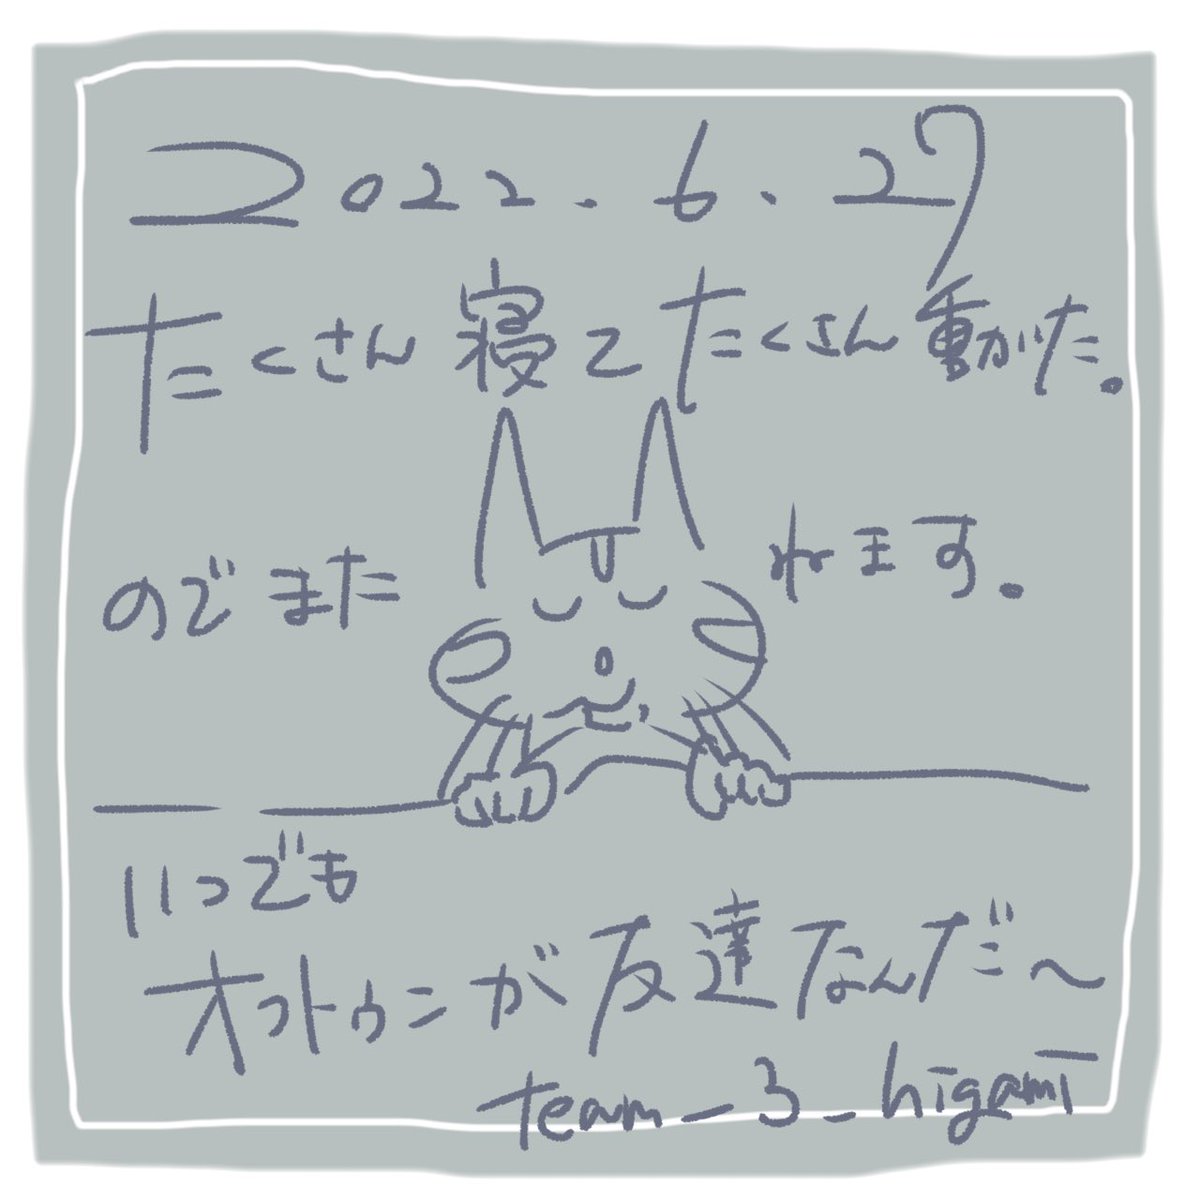 2022.6.27
たくさん寝てたくさん動いた。
のでまた ねます。
いつでも
オフトゥンが友達なんだ～
team_3_higami